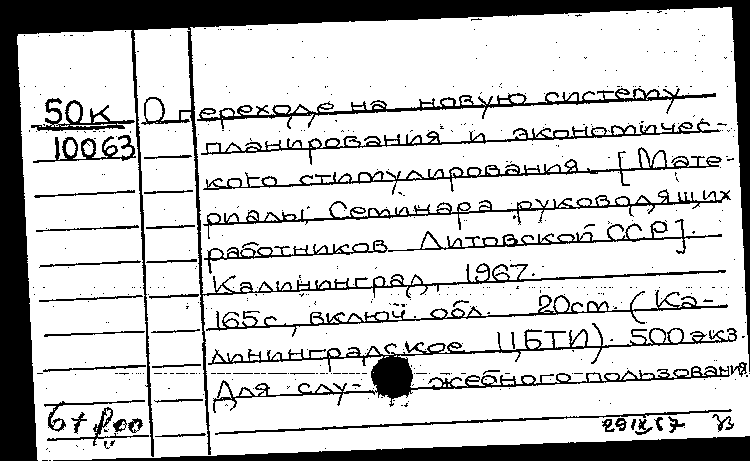 50к О переходе на новую систему
10063 планирования и экономичес-
кого стимулирования. [Мате-
риалы Семинара руководящих
работников Литовской ССР].
Калининград, 1967.
165с., включ. обл. 20ст. (Ка-
лининградское ЦБТИ). 500экз.
Для слу- жебного пользования
29 IX 67